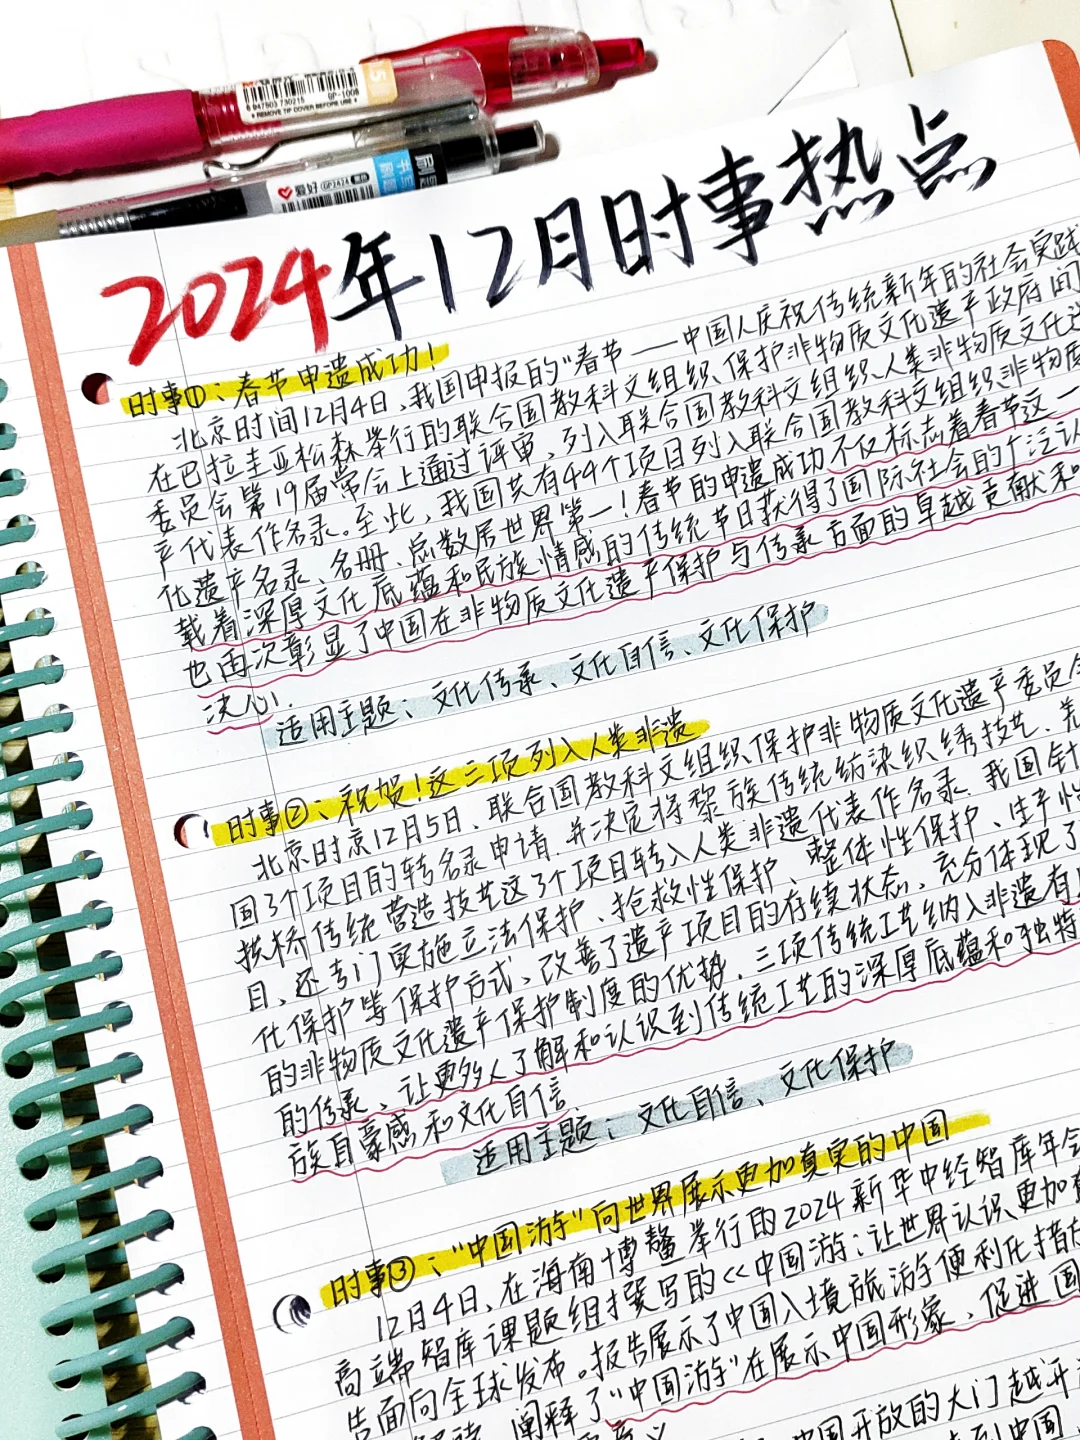 6 947503 730215 GP-1008
REMOVE TIP COVER BEFORE USE
爱好 GP2424
2024年12月时事热点
时事①:春节申遗成功!
北京时间12月4日、我国申报的"春节——中国人庆祝传统新年的社会实践
在巴拉圭亚松森举行的联合国教科文组织、保护非物质文化遗产政府间
委员会第19届常会上通过评审、列入联合国教科文组织人类非物质文化遗
产代表作名录。至此、我国共有44个项目列入联合国教科文组织非物质
化遗产名录、名册、总数居世界第一!春节的申遗成功不仅标志着春节这一
载着深厚文化底蕴和民族情感的传统节日获得了国际社会的广泛认
也再次彰显了中国在非物质文化遗产保护与传承方面的卓越贡献和
决心!
适用主题:文化传承、文化自信、文化保护
时事②:祝贺!这三项列入人类非遗
北京时京12月5日、联合国教科文组织保护非物质文化遗产委员会
国3个项目的转名录申请.并决定将黎族传统纺染织绣技艺、羌
拱桥传统营造技艺这3个项目转入人类非遗代表作名录.我国针
目、还专门实施立法保护、抢救性保护、整体性保护、生产性
化保护等保护方式、改善了遗产项目的存续状态、充分体现了
的非物质文化遗产保护制度的优势.三项传统工艺纳入非遗有
的传承、让更多人了解和认识到传统工艺的深厚底蕴和独特
族自豪感和文化自信.
适用主题:文化自信、文化保护
时事③:"中国游"向世界展示更加真实的中国
12月4日、在海南博鳌举行的2024新华中经智库年会
高端智库课题组撰写的《中国游:让世界认识更加
告面向全球发布。报告展示了中国入境旅游便利化措
阐释了"中国游"在展示中国形象、促进国
中国开放的大门越开
到中国、